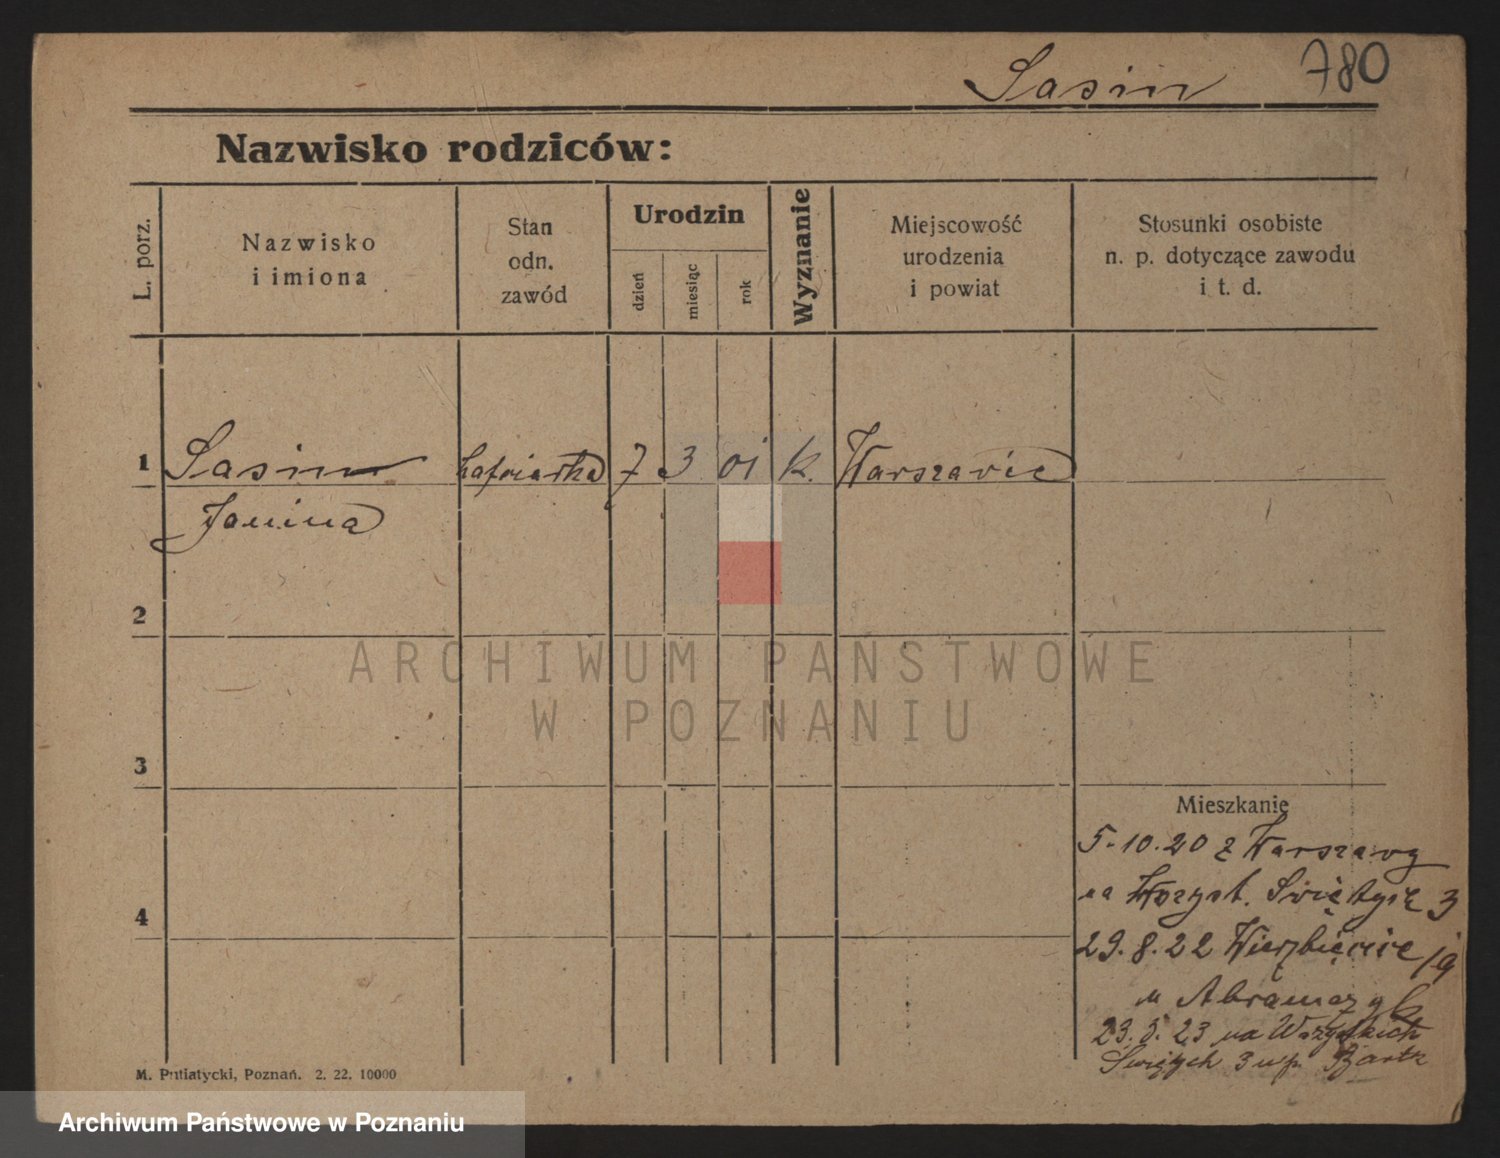 Sasin 780
Nazwisko rodziców:
L. porz.
Nazwisko
i imiona
Stan
odn.
zawód
Urodzin
dzień
miesiąc
rok
Wyznanie
Miejscowość
urodzenia
i powiat
Stosunki osobiste
n. p. dotyczące zawodu
i t. d.
1 Sasin hafciarka 7 3 01 k. Warszawie
Janina
2
3
4
Mieszkanie
5.10.20 z Warszawy
na Wszyst. Świętych 3
29.8.22 Wierzbięcice 19
u
23.5.23 na Wszystkich
Świętych 3 u p.
M. Putiatycki, Poznań. 2. 22. 10000
ARCHIWUM PAŃSTWOWE
W POZNANIU
Archiwum Państwowe w Poznaniu